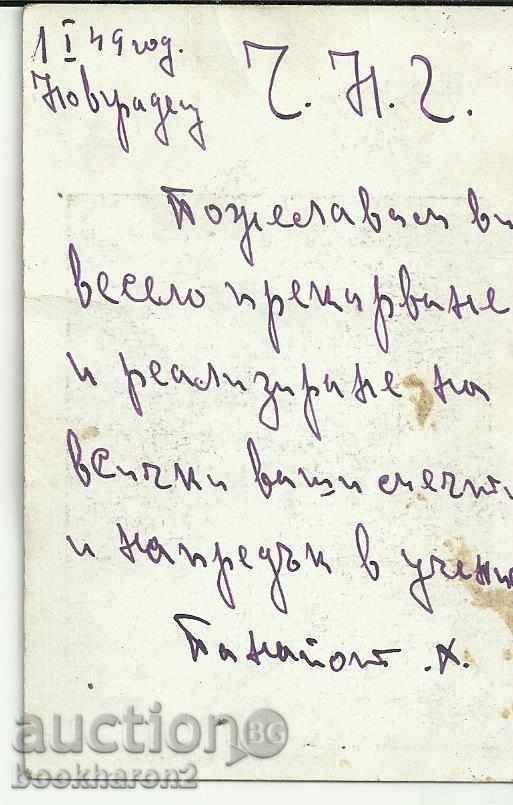 1 I 49 год.
Новградец
Ч. Н. Г.
Пожелавам ви
весело прекарване
и реализиране на
всички ваши мечти
и напредък в учени
Панайот .Х.
auction BG
bookharon2